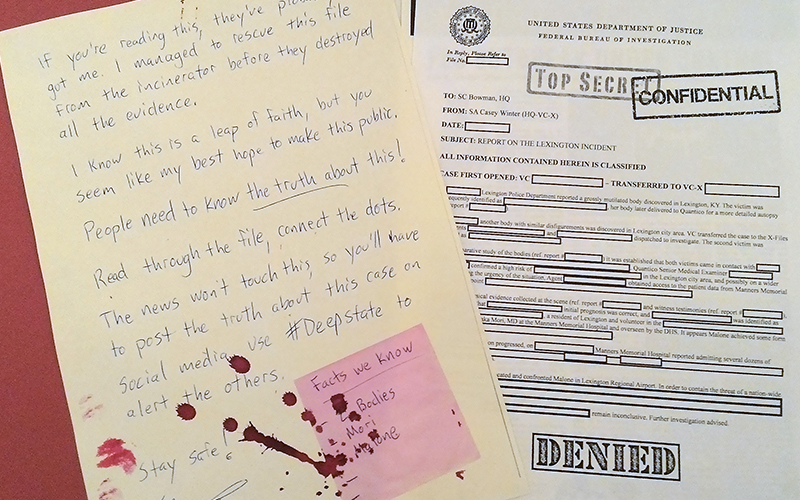 If you're reading this, they've
got me. I managed to rescue this file
from the incinerator before they destroyed
all the evidence.
I know this is a leap of faith, but you
seem like my best hope to make this public.
People need to know the truth about this!
Read through the file, connect the dots.
The news won't touch this, so you'll have
to post the truth about this case on
social media, use #Deepstate to
alert the others.
Stay safe!
Facts we know
Bodies
Mori
Malone
UNITED STATES DEPARTMENT OF JUSTICE
FEDERAL BUREAU OF INVESTIGATION
In Reply, Please Refer to
File No.
TOP SECRET
CONFIDENTIAL
TO: SC Bowman, HQ
FROM: SA Casey Winter (HQ-VC-X)
DATE:
SUBJECT: REPORT ON THE LEXINGTON INCIDENT
ALL INFORMATION CONTAINED HEREIN IS CLASSIFIED
CASE FIRST OPENED: VC – TRANSFERRED TO VC-X
Lexington Police Department reported a grossly mutilated body discovered in Lexington, KY. The victim was
identified as , her body later delivered to Quantico for a more detailed autopsy
report #
another body with similar disfigurements was discovered in Lexington city area. VC transferred the case to the X-Files
and dispatched to investigate. The second victim was
study of the bodies (ref. report # ) it was established that both victims came in contact with
confirmed a high risk of Quantico Senior Medical Examiner
the urgency of the situation, Agent in the Lexington city area, and possibly on a wider
point obtained access to the patient data from Manners Memorial
evidence collected at the scene (ref. report # and witness testimonies (ref. report #
that initial prognosis was correct, and was identified as
, a resident of Lexington and volunteer in the
Mori, MD at the Manners Memorial Hospital and overseen by the DHS. It appears Malone achieved some form
on progressed, on Manners Memorial Hospital reported admitting several dozens of
and confronted Malone in Lexington Regional Airport. In order to contain the threat of a nation-wide
remain inconclusive. Further investigation advised.
DENIED